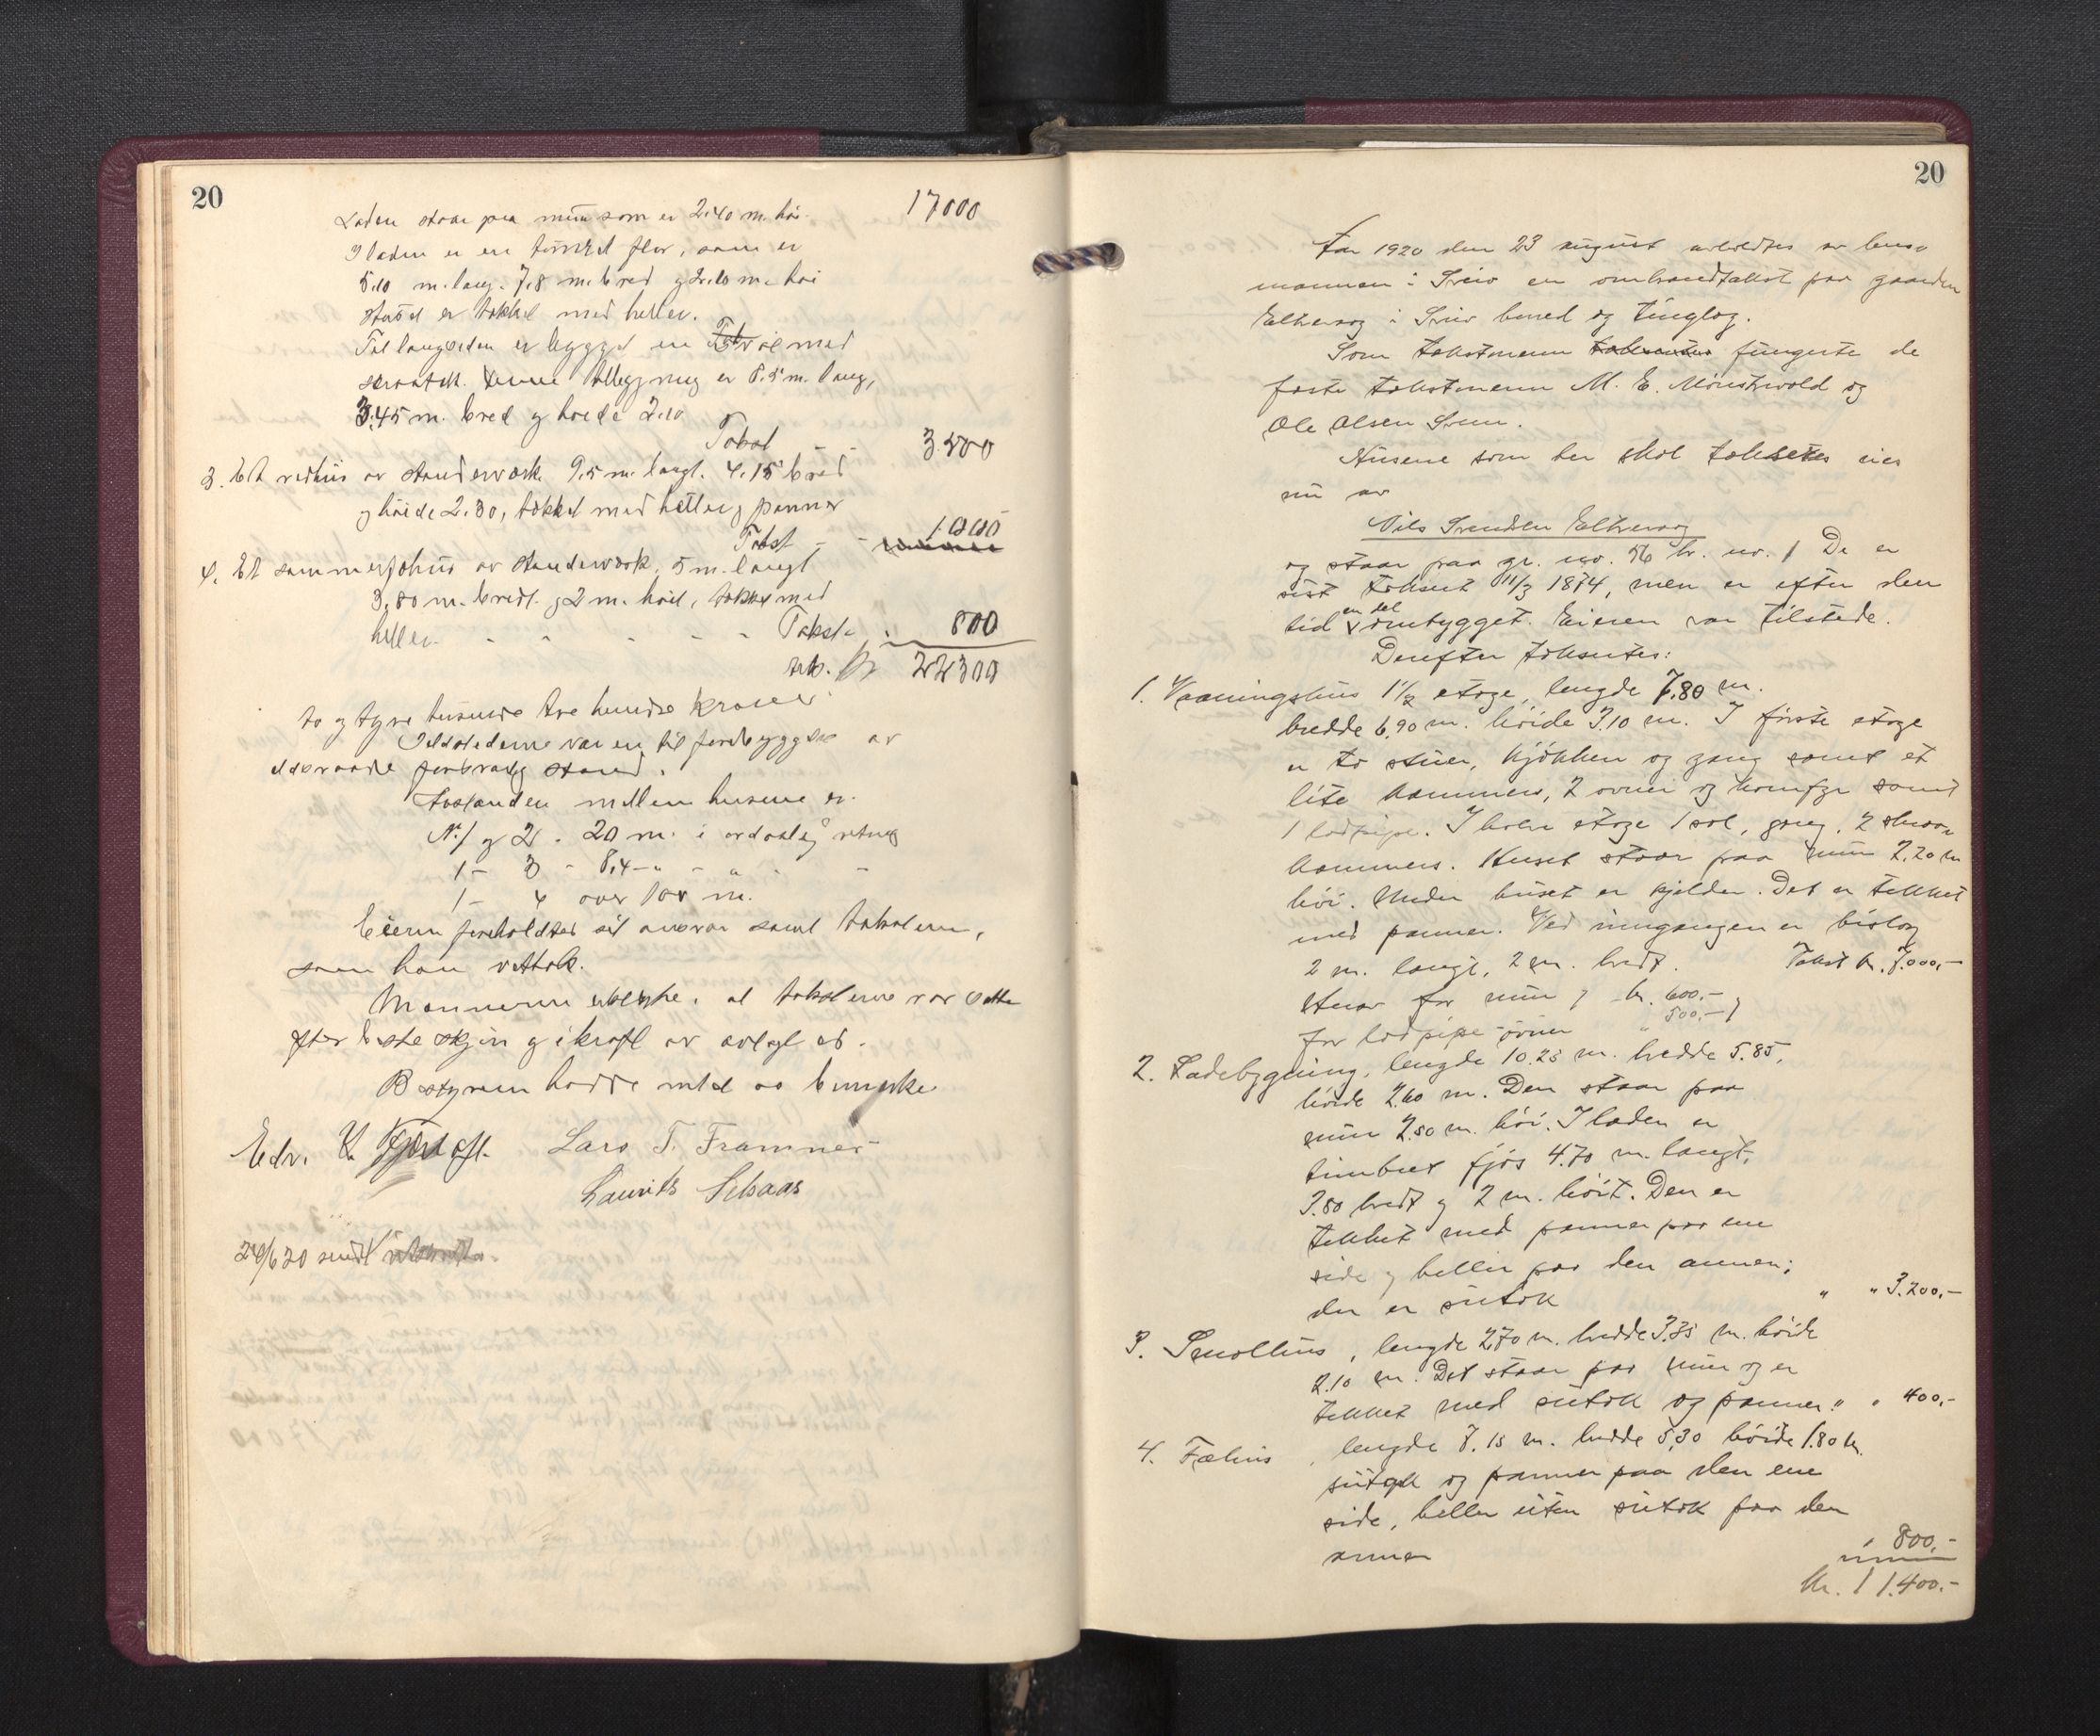 20
17000
Laden staar paa mur som er 2.40 m. høi.
I laden er en tømret flor, som er
5.10 m. lang. 7.8 m. bred og 2.10 m. høi
er tækket med heller.
Til langsiden er bygget en med
skraatak. Denne tilbygning er 8.5 m. lang,
3.45 m. bred og høide 2.10
Takst - - 3500
3. Et vedhus av standerværk 9.5 m. langt. 4.15 bred
og høide 2.30, tækket med heller og panner
Takst - - 1000
4. Et sommerfjøhus av standerværk, 5 m. langt
3.80 m. bredt. og 2 m. høit, tækket med
heller - - - - - Takst 800
Kr 22300
to og tyve tusende tre hundre kroner
Ildstederne var en til forebyggelse av
ildsvaade forsvarlig stand.
Avstanden mellem husene er.
Nr 1 og 2 - 20 m. i ordvestlig retning
1 - 3 - 8,4 - " - " - -
1 - 4 over 100 m.
Eieren foreholdtes sit ansvar samt taksterne,
som han vedtok.
Mænnerne at taksterne var satte
efter beste skjøn og i kraft av avlagt ed.
Bestyreren hadde intet at bemerke
Edv. K. Fjørtoft. Lars T. Framnes
Laurits Selsaas
26/6 20 sendt
20
Aar 1920 den 23 august avholdtes av lens-
mannen i Sveio en ombrandtakst paa gaarden
Eltrevaag i Sveio herred og tinglag.
Som takstmenn fungerte de
faste takstmenn M. E. Mønstrevold og
Ole Olsen Sveen.
Husene som her skal takseres eies
nu av
Nils Svendsen Eltrevaag
og staar paa gr. no. 56 br. no. 1 De er
sist taksert 11/3 1874, men er efter den
tid en del ombygget. Eieren var tilstede.
Derefter taksertes:
1. Vaaningshus 1 1/2 etage, lengde 7.80 m.
bredde 6.90 m. høide 3.10 m. I første etage
er to stuer, kjøkken og gang samt et
lite kammers, 2 ovner og komfyr samt
1 lodpipe. I halve etage 1 sal, gang, 2 smaa
kammers. Huset staar paa mur 2.20 m
høi. Under huset er kjelder. Det er tækket
med panner. Ved inngangen er bislag
2 m. langt, 2 m. bredt. Takst kr. 7.000,-
Herav for mur kr. 600.-
for lodpipe - ovner " 500.-
2. Ladebygning, lengde 10.25 m. bredde 5.85,
høide 2.60 m. Den staar paa
mur 2.50 m. høi. I laden er
timbret fjøs 4.70 m. langt,
3.80 bredt og 2 m. høit. Den er
tekket med panner paa ene
side og heller paa den annen;
der er sutak " " 3.200,-
3. Smalhus, lengde 2.70 m. bredde 3.35 m. høide
2.10 m. Det staar paa mur og er
tekket med sutak og panner. " " 400,-
4. Fæhus, lengde 7.15 m. bredde 5,30 høide 1.80 m.
sutak og panner paa den ene
side, heller uten sutak paa den
annen
" 800,-
Kr. 11.400.-